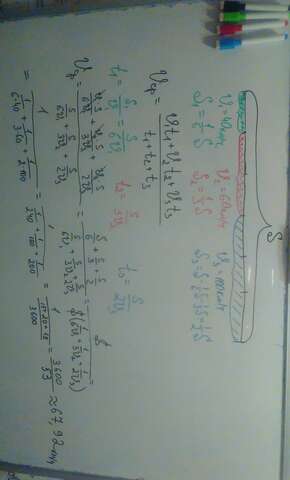 S
V₁=40км/ч V₂=60км/ч V₃=100км/ч
S₁=1/6 S S₂=1/3 S S₃=S-1/6 S-1/3 S=1/2 S
Vср = (V₁t₁+V₂t₂+V₃t₃)/(t₁+t₂+t₃)
t₁=S₁/V₁=S/6V₁ t₂=S/3V₂ t₃=S/2V₃
Vср = (V₁S/6V₁+V₂S/3V₂+V₃S/2V₃)/(S/6V₁+S/3V₂+S/2V₃) = (S/6+S/3+S/2)/(S/6V₁+S/3V₂+S/2V₃) = S/(S(1/6V₁+1/3V₂+1/2V₃)) =
= 1/(1/6·40+1/3·60+1/2·100) = 1/(1/240+1/180+1/200) = 1/((15+20+18)/3600) = 3600/53 ≈ 67,92км/ч